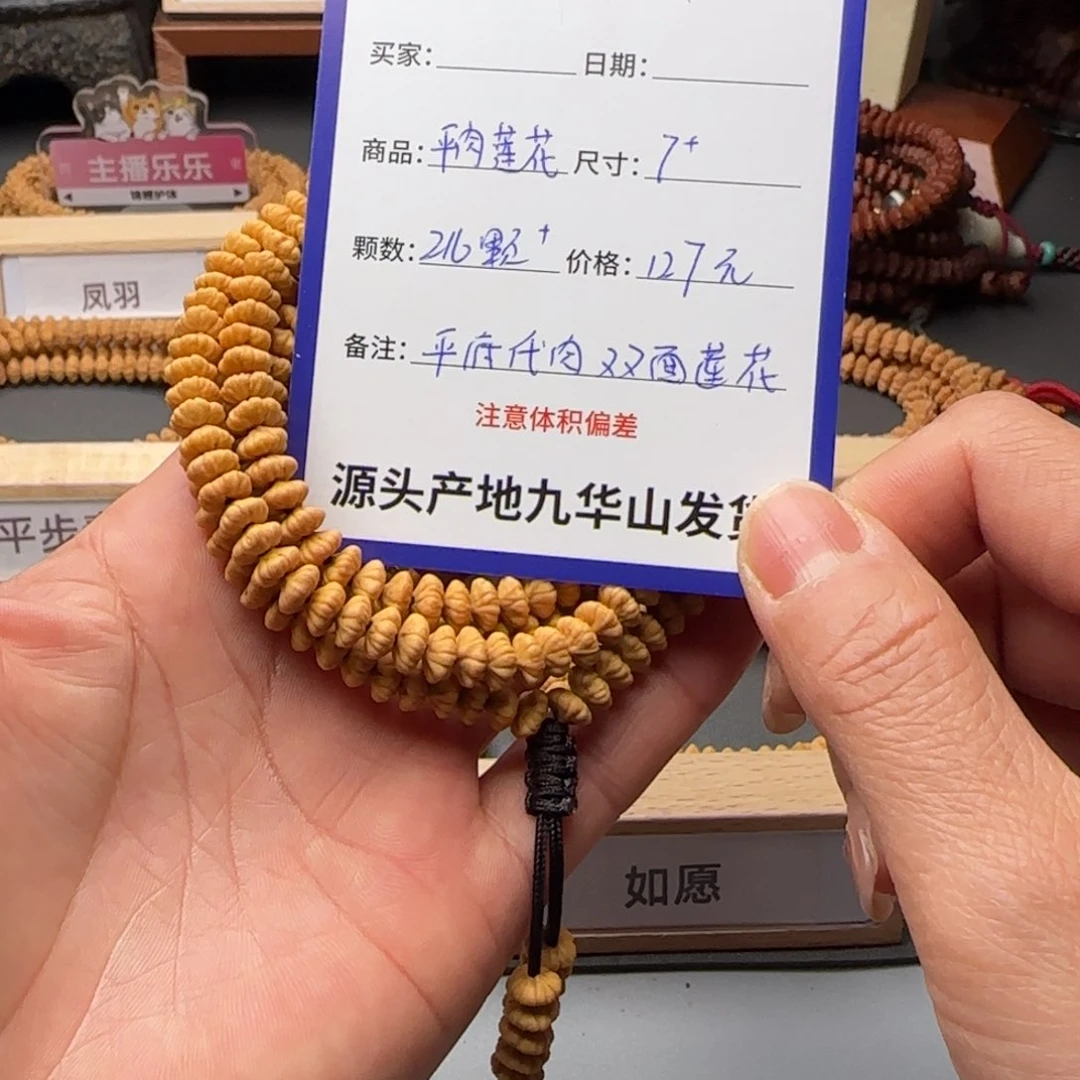 买家： 日期：
商品：平肉莲花 尺寸：7+
颗数：216颗+ 价格：127元
备注：平底代肉 双面莲花
注意体积偏差
源头产地九华山发货
主播乐乐
凤羽
平步
如愿